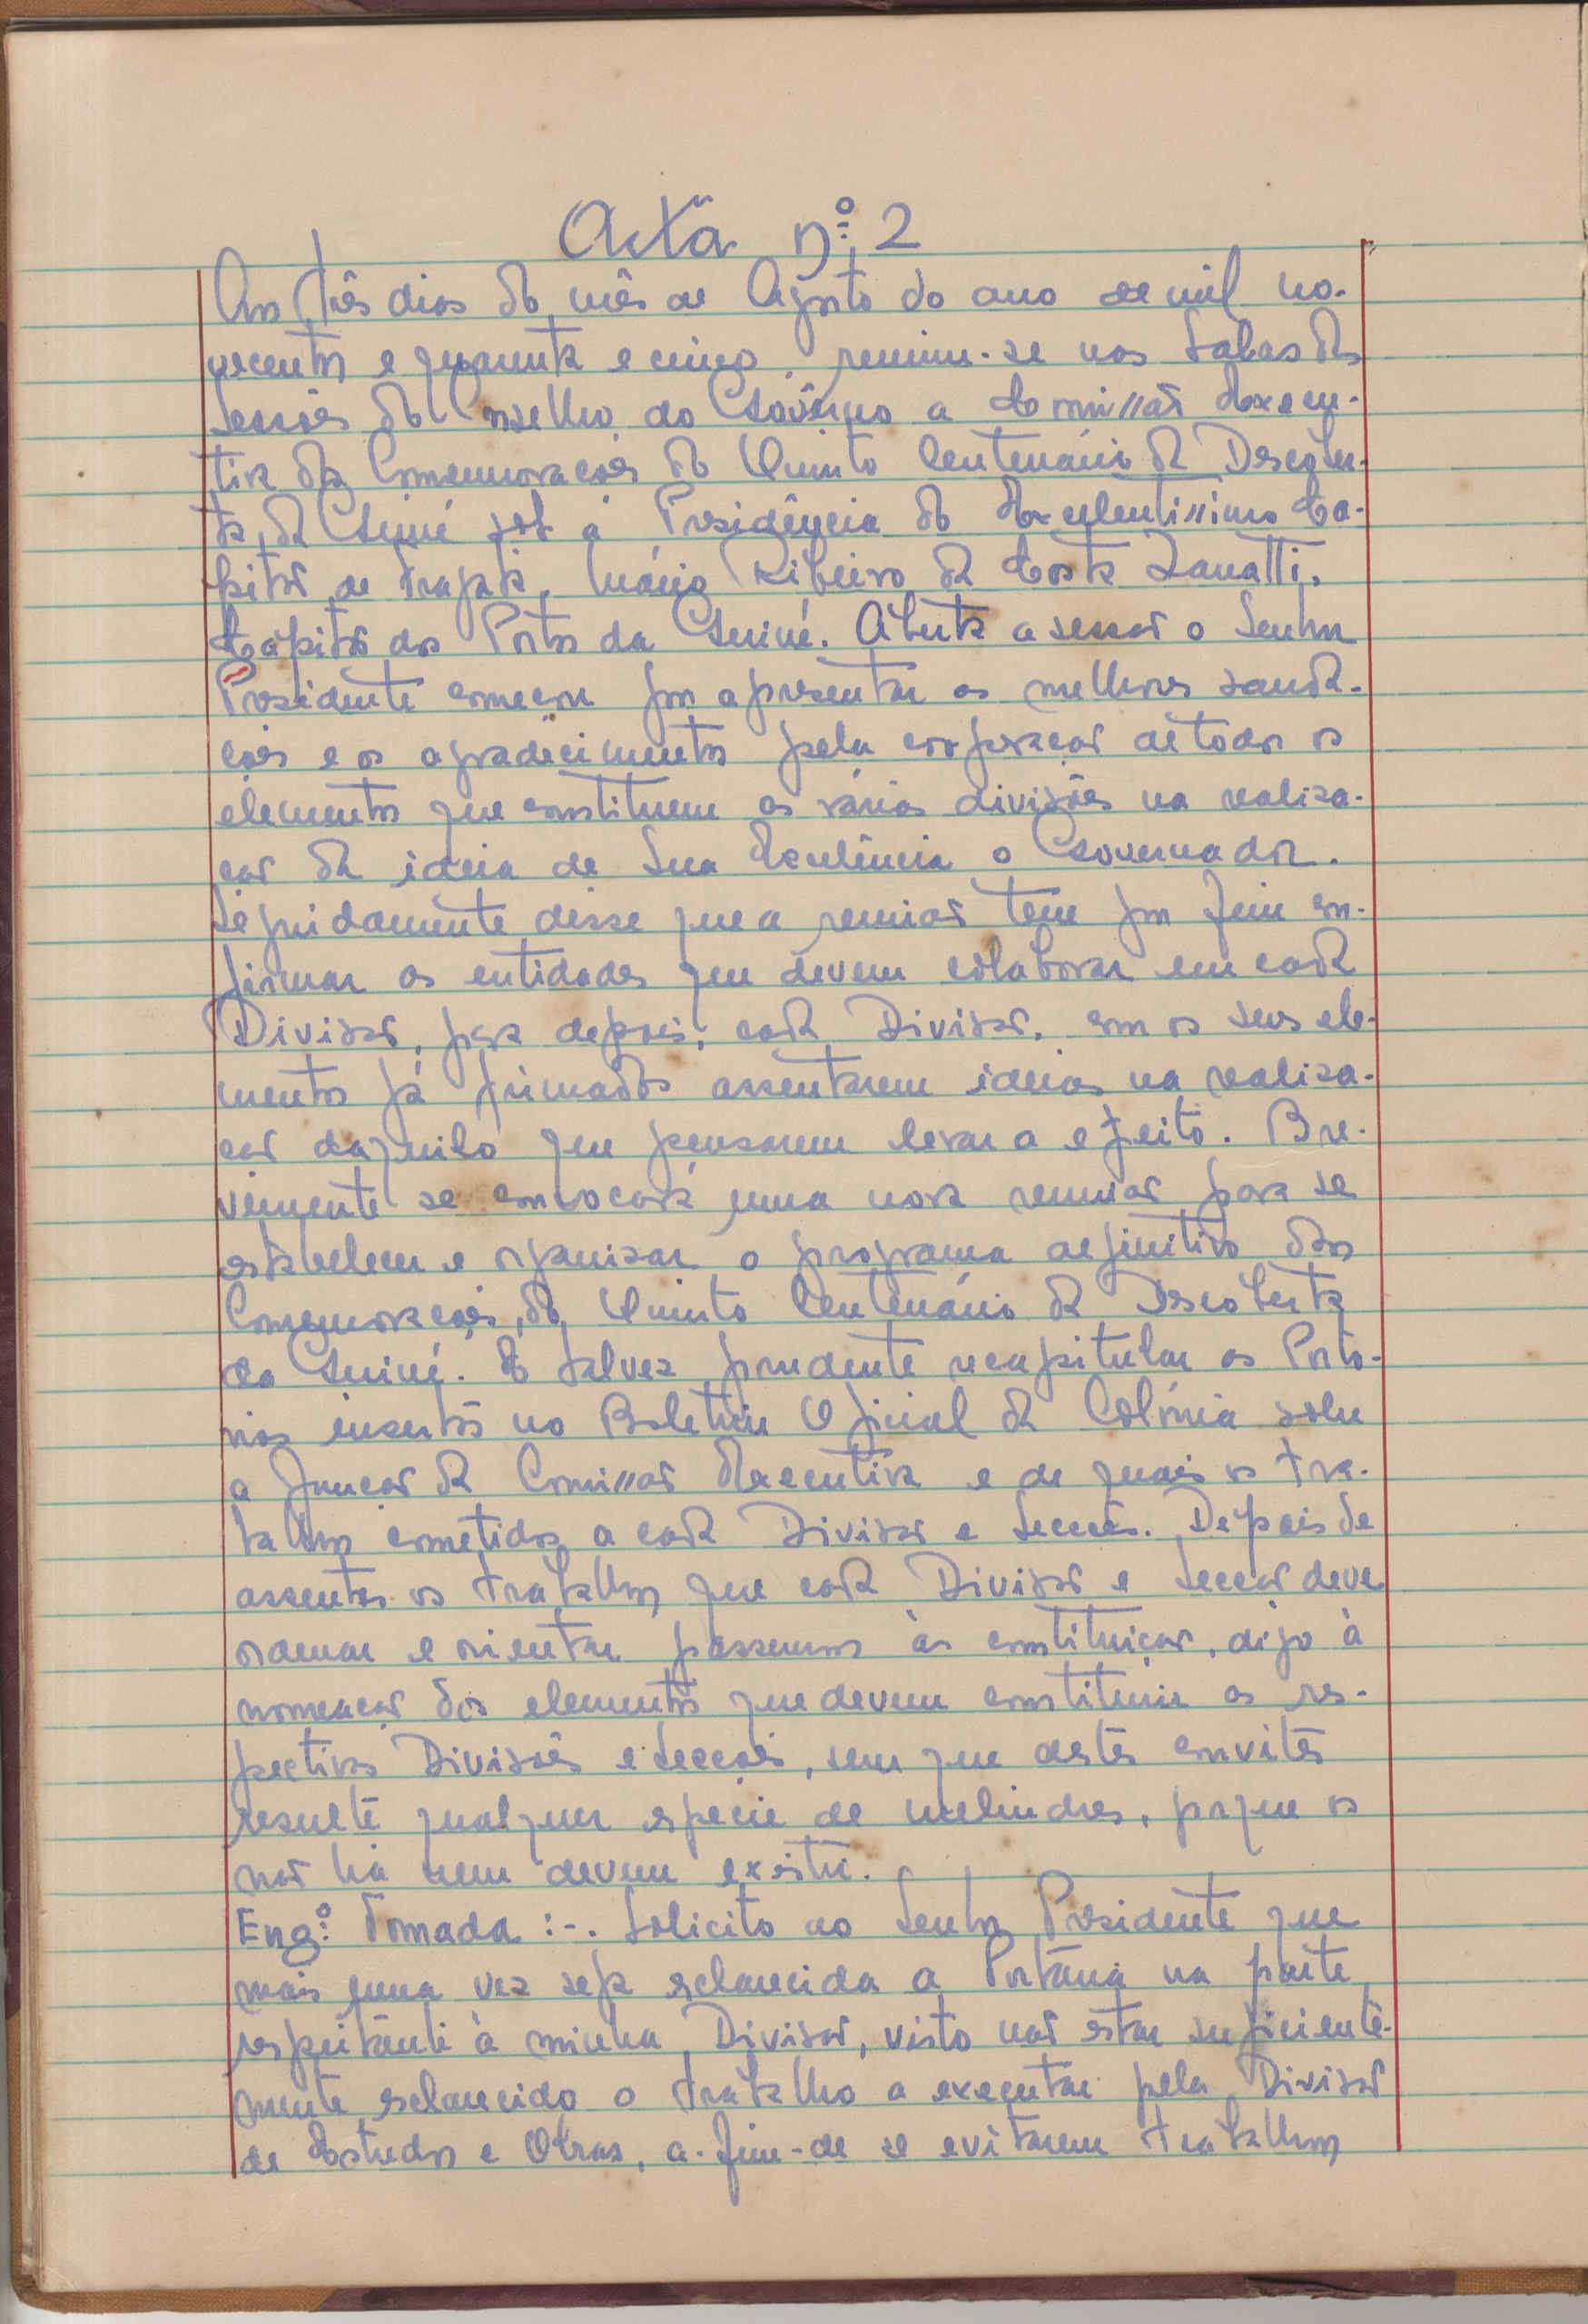 Acta nº 2
Aos três dias do mês de Agosto do ano de mil no-
vecentos e quarenta e cinco, reuniu-se nas Salas das
Sessões do Conselho do Govêrno a Comissão Execu-
tiva das Comemorações do Quinto Centenário da Descober-
ta da Guiné sob a Presidência do Excelentissimo Ca-
pitão de Fragata, Mário Ribeiro da Costa Zanatti,
Capitão dos Portos da Guiné. Aberta a sessão o Senhor
Presidente começou por apresentar as melhores sauda-
ções e os agradecimentos pela cooperação de todos os
elementos que constituem as várias divisões na realisa-
ção da ideia de Sua Excelência o Governador.
Seguidamente disse que a reunião tem por fim con-
firmar as entidades que devem colaborar em cada
Divisão, para depois, cada Divisão, com os seus ele-
mentos já firmados assentarem ideias na realisa-
ção daquilo que pensarem levar a efeito. Bre-
vemente se convocará uma nova reunião para se
estabelecer e organisar o programa definitivo das
Comemorações do Quinto Centenário da Descoberta
da Guiné. É talvez prudente recapitular as Porta-
rias insertas no Boletim Oficial da Colónia sobre
a função da Comissão Executiva e de quais os tra-
balhos cometidos a cada Divisão e Secções. Depois de
assentes os trabalhos que cada Divisão e Secção deve
ordenar e orientar passemos às constituição, digo à
nomeação dos elementos que devem constituir as res-
pectivas Divisões e Secções, sem que destes convites
resulte qualquer espécie de melindres, porque os
não há nem devem existir.
Engº. Tomada :-. Solicito ao Senhor Presidente que
mais uma vez seja esclarecida a Portaria na parte
respeitante à minha Divisão, visto não estar suficiente-
mente esclarecido o trabalho a executar pela Divisão
de Estudos e Obras, a-fim-de se evitarem trabalhos